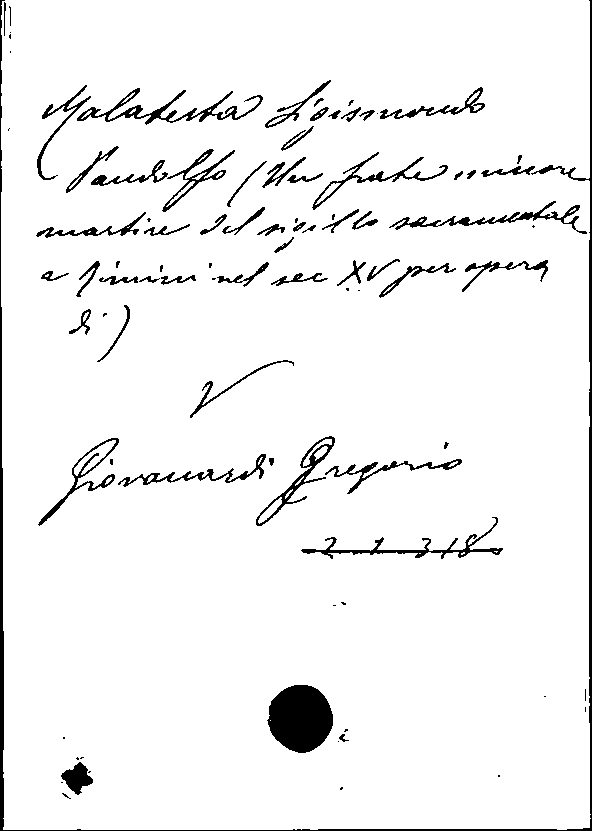 Malatesta Sigismondo
Pandolfo (Un frate minore
martire del sigillo sacramentale
a Rimini nel sec XV per opera
di)
V
Giovanardi Gregorio
2 1 318